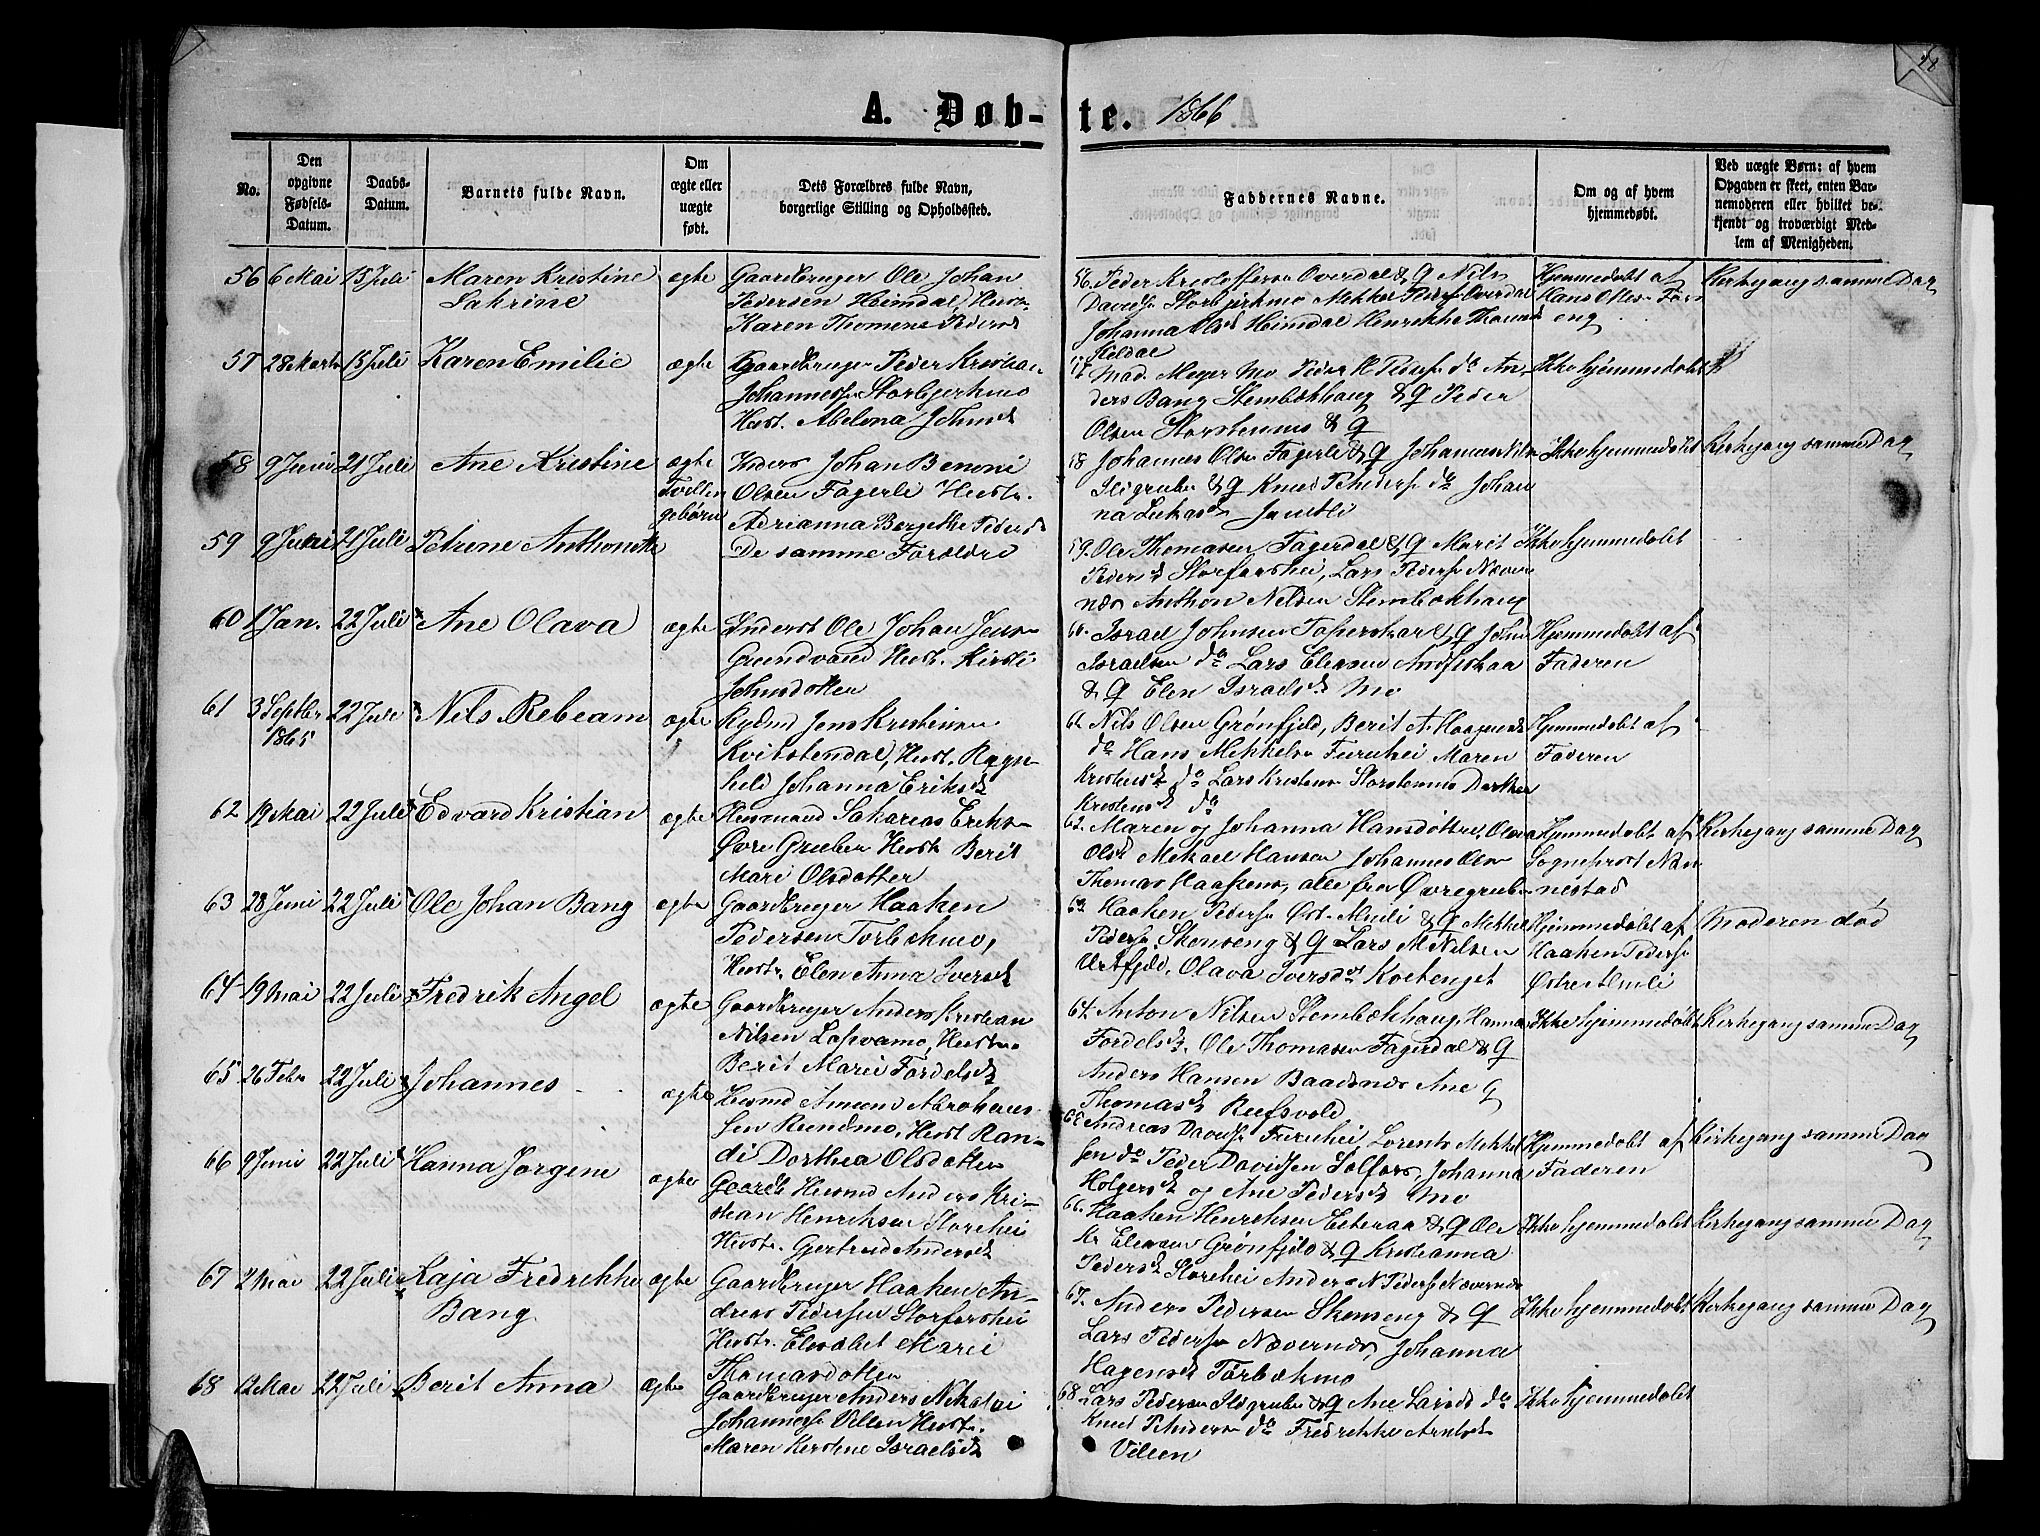 28
A. Døb-te. 1866
No.
Den opgivne Fødsels-Datum.
Daabs-Datum.
Barnets fulde Navn.
Om ægte eller uægte født.
Dets Forældres fulde Navn, borgerlige Stilling og Opholdssted.
Faddernes Navne.
Om og af hvem hjemmedøbt.
Ved uægte Børn: af hvem Opgaven er skeet, enten Barnemoderen eller hvilket bekjendt og troværdigt Medlem af Menigheden.
56 6 Mai 15 Juli Maren Kristine ægte Gaardbruger Ole Johan
Sakrine Pedersen Heimdal, Hust.
Karen Thomine Pedersd
56. Peder Kristoffersen Overdal & Q Nils
Davids. Storbjerkmo Mekkel Peders Overdal
Johanna Olsd Heimdal Henrikke Thomasd
Keldal
Hjemmedøbt af
Hans Olsen
eng
Kirkegang samme Dag
57 28 Marts 15 Juli Karen Emilie ægte Gaardbruger Peder Kristian
Johannesen Storbjerkmo
Hust. Abelona Johnsd
57 Mad. Meyer Mo Peder Peders do An-
ders Bang Stenbækhaug & Q Peder
Olsen Storstenmo & Q
Ikke hjemmedøbt
58 9 Juni 21 Juli Ane Kristine ægte Inders Johan Benoni
Tvillingebørn Olsen Fagerli Hustr.
Adrianna Bergithe Pedersd
58 Johannes Olsen Fagerli & Q Johannes Nils
Iligruben & Q Knud Peders do Johan
na Lukasd
Ikke hjemmedøbt
Kirkegang samme Dag
59 9 Juni 21 Juli Petrine Anthonette De samme Forældre
59. Ole Thomasen Fagerdal & Q Marit
Pedersd Storforshei, Lars Peders Næver
næs Anthon Nilsen Stenbækhaug
Ikke hjemmedøbt
60 1 Jan. 22 Juli Ane Olava ægte Inderst Ole Johan Jens
Grundvand Hust. Kirsti
Johnsdatter
60. Israel Johnsen & Q John
Israelsen do Lars Eliasen
& Q Elen Israelsd Mo
Hjemmedøbt af
Faderen
61 3 Septbr 22 Juli Nils Rebeam ægte Rydnd Jens Kristian
1865 Kvitstendal, Hust. Ragn-
hild Johanna Eriksd
61 Nils Olsen Grønfjeld, Berit A. Haagensd
do Hans Mikkels Furuhei Maren
Kristensd do Lars Kristens Storstenmo Dorthea
Kristensd do
Hjemmedøbt af
Faderen
62 19 Mai 22 Juli Edvard Kristian ægte Huusmand Sakarias Eriks
Øvre Gruben Hust Berit
Mari Olsdatter
62. Maren og Johanna Hansdøttre, Olava
Olsd Mekael Hansen Johannes Olsen
Thomas Haagens, alle fra Øvregruben
Hjemmedøbt af
Sogneprest Nan
nestad
Kirkegang samme Dag
63 28 Juni 22 Juli Ole Johan Bang ægte Gaardbruger Haaken
Pedersen Torbækmo,
Hustr. Elen Anna Iversd
63. Haaken Peders Øst. Mule & Q Mekkel
Peders Skonseng & Q Lars M Nilsen
Urtfjeld. Olava Iversd
Hjemmedøbt af
Haaken Peders
Østre Muli
Moderen død
64 19 Mai 22 Juli Fredrik Angel ægte Gaardbruger Anders Kristian
Nilsen, Hustr.
Berit Marie Fordelsd
64. Anton Nilsen Stenbækhaug, Hanna
Fordelsd. Ole Thomasen Fagerdal & Q
Anders Hansen Baadsnæs Ane
Thomasd Rufsvold
Ikke hjemmedøbt
Kirkegang samme Dag
65 26 Febr 22 Juli Johannes ægte Husmd Amund Abrahams
sen Rundmo, Hust Ran-
di Dorthea Olsdatter
65 Andreas Davids Furuhei, Lorents Mekkel
sen do Peder Davidsen Solfors, Johanna
Holgersd og Ane Pedersd Mo
Hjemmedøbt af
Faderen
Kirkegang samme Dag
66 9 Juni 22 Juli Hanna Jørgine ægte Husmd Anders Kri-
stian Henriksen Storehei
Hustr. Gjertrud Andersd
66. Haaken Henriksen Eiteraa & Q Ole
Kr Eliasen Grønfjeld & Q Kristianna
Pedersd Storehei Anders N Peders Nævernæs
Ikke hjemmedøbt
Kirkegang samme Dag
67 2 Mai 22 Juli Kaja Fredrikke ægte Gaardbruger Haaken An-
Bang dreas Pedersen Storforshei
Hustr. Elisabet Marie
Thomasdatter
67. Anders Pedersen Skonseng & Q
Lars Peders Nævernæs, Johanna
Hagensd Torbækmo
Ikke hjemmedøbt
Kirkegang samme Dag
68 12 Mai 22 Juli Berit Anna ægte Gaardbruger Anders Nikolai
Johannes Villen Hust.
Maren Kirstine Israelsd
68. Lars Pedersen Iligruben & Q Ane Larsd do
Knud P Anders do Fredrikke Arntsd
Villen
Ikke hjemmedøbt